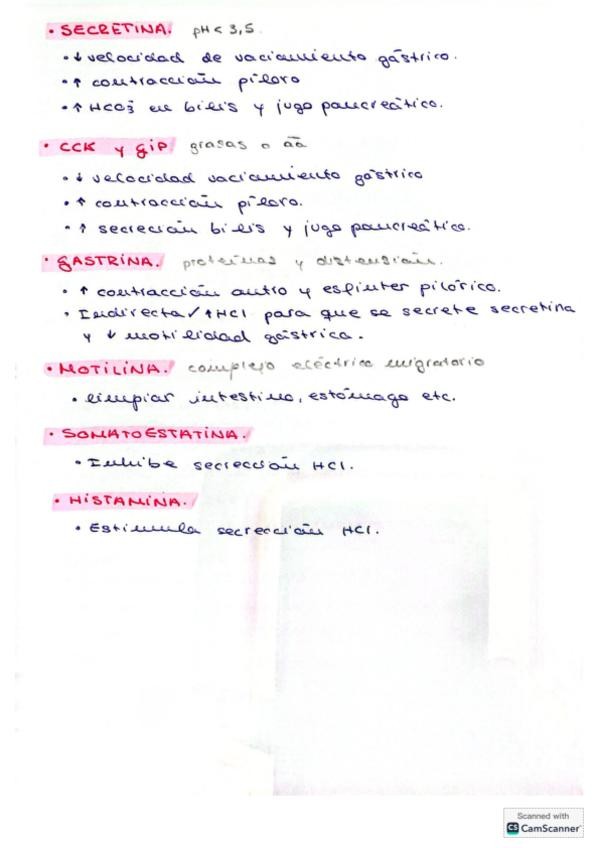 • SECRETINA. pH < 3,5.
• ↓ velocidad de vaciamiento gástrico.
• ↑ contracción píloro
• ↑ HCO3⁻ en bilis y jugo pancreático.
• CCK y GIP grasas o aa
• ↓ velocidad vaciamiento gástrico
• ↑ contracción píloro.
• ↑ secreción bilis y jugo pancreático.
• GASTRINA. proteínas y distensión.
• ↑ contracción antro y esfínter pilórico.
• Indirecta / ↑ HCl para que se secrete secretina
y ↓ motilidad gástrica.
• MOTILINA. complejo eléctrico migratorio
• limpiar intestino, estómago etc.
• SOMATOESTATINA.
• Inhibe secreción HCl.
• HISTAMINA.
• Estimula secreción HCl.
Scanned with
CS CamScanner